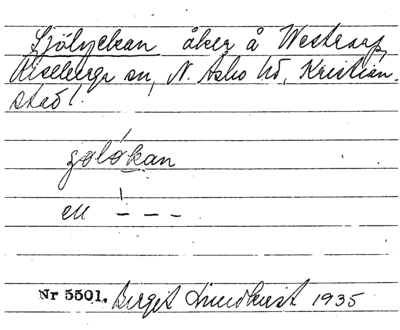 Sjölyckan åker å Westraarp,
Riseberga sn, N. Åsbo hd, Kristian-
stad l.
en – – – –
Nr 5501. Birgit Lindkvist 1935